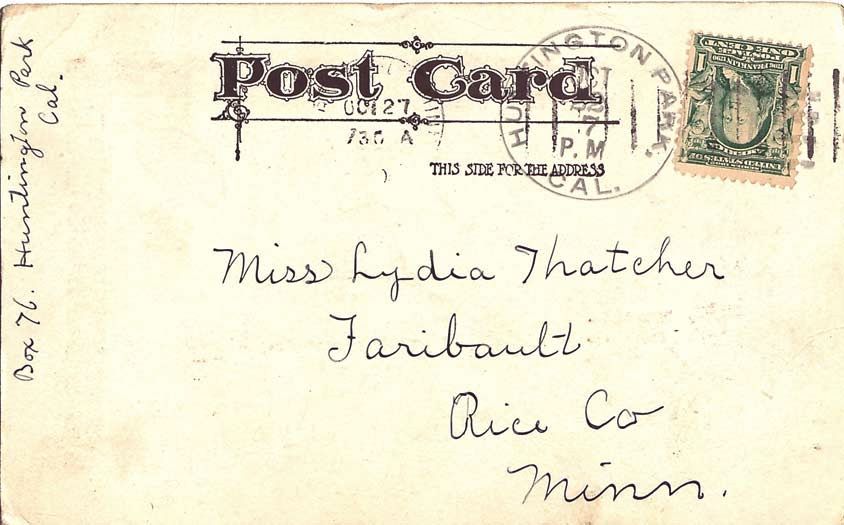 Post Card
OCT 27
730 A
THIS SIDE FOR THE ADDRESS
HUNTINGTON PARK,
CAL.
OCT
7
P.M
ONE CENT
1
Box 76. Huntington Park
Cal.
Miss Lydia Thatcher
Faribault
Rice Co
Minn.